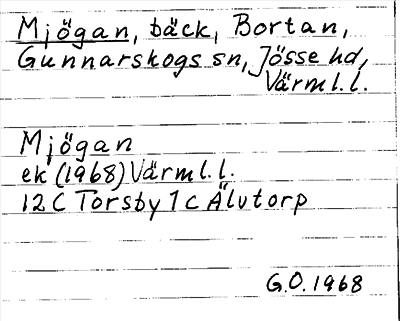 Mjögan, bäck, Bortan,
Gunnarskogs sn, Jösse hd,
Värml. l.
Mjögan
ek (1968) Värml. l.
12 C Torsby 7 c Älvtorp
G.O. 1968